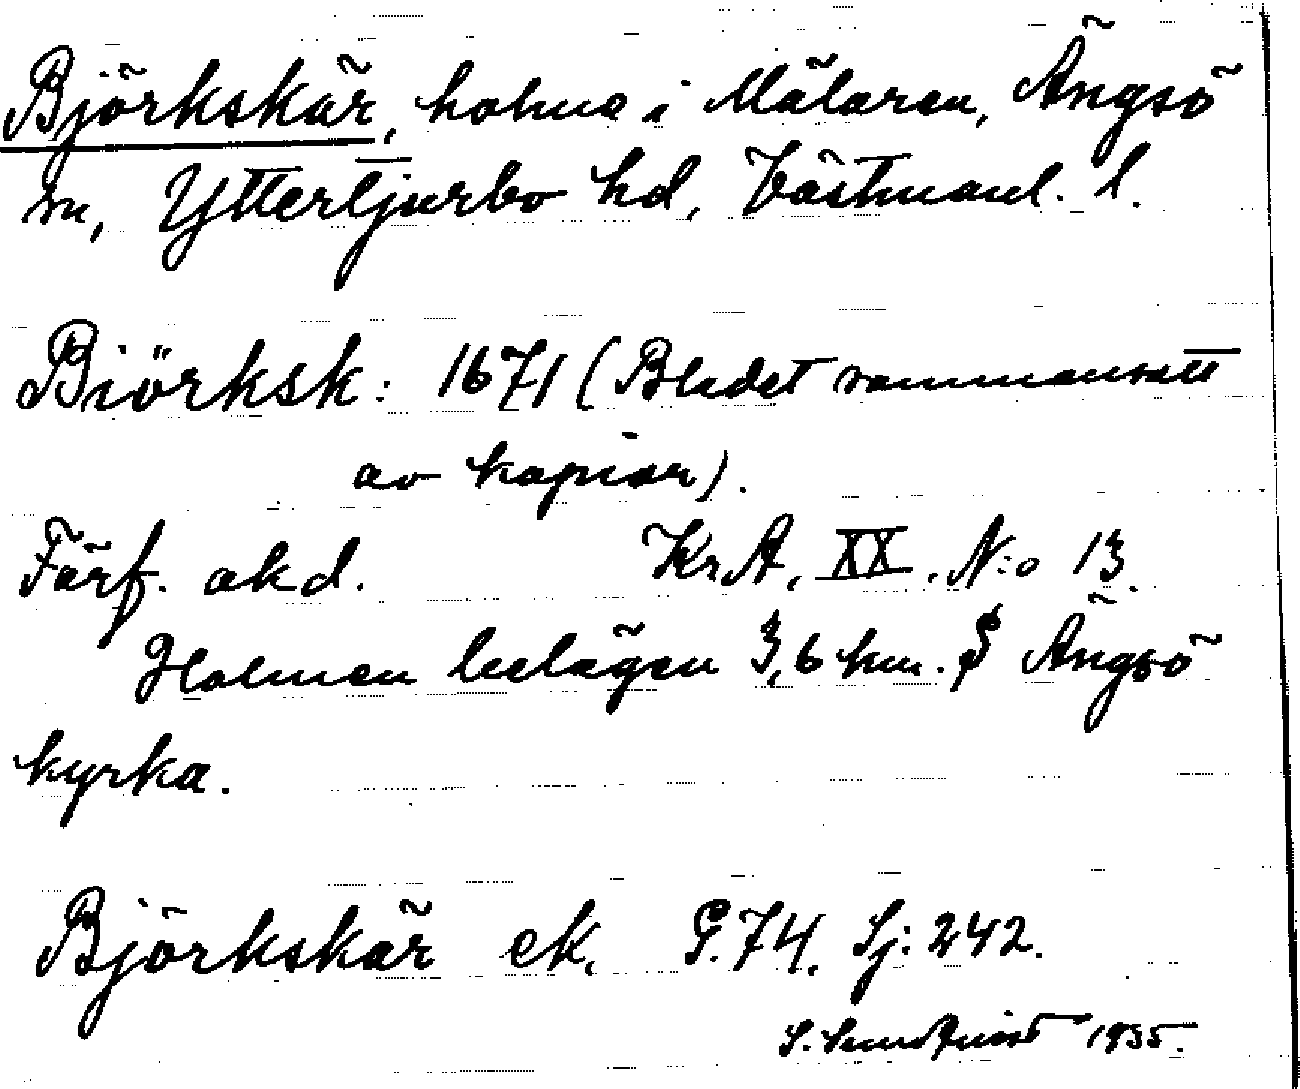 Björkskär, holme i Mälaren, Ängsö
sn, Yttertjurbo hd, Västmanl. l.
Biörksk: 1671 (Bladet sammansatt
av kopior).
Förf. okd. Kr.A, XX, N:o 13.
Holmen belägen 3,6 km. S Ängsö
kyrka.
Björkskär ek. G.74. Sj: 242.
S. Sundquist 1935.